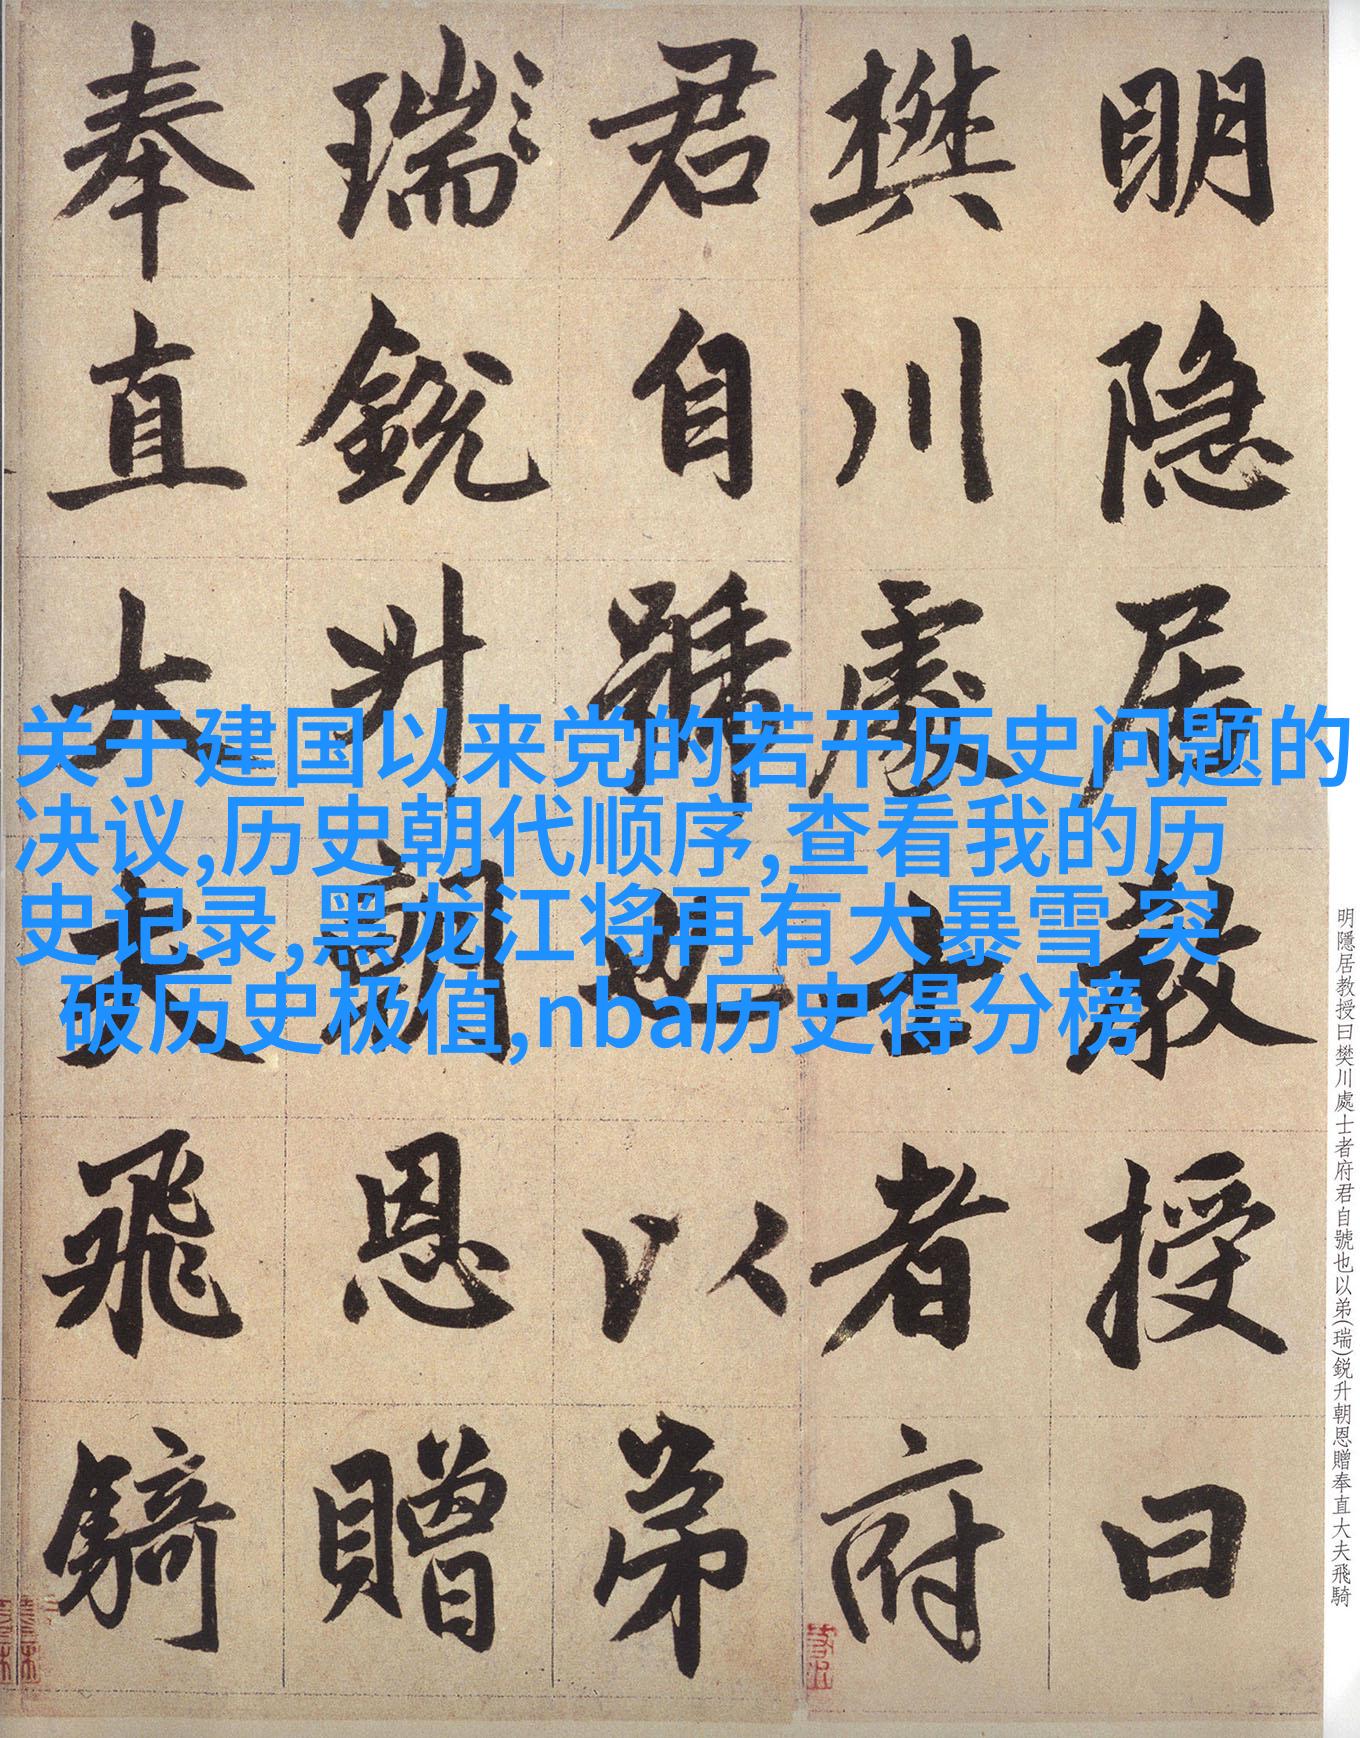 明隐居教授曰
樊川處士者府
君自號也以弟
瑞銳升朝恩贈
奉直大夫飛騎
关于建国以来党的若干历史问题的
决议,历史朝代顺序,查看我的历
史记录,黑龙江将再有大暴雪 突
破历史极值,nba历史得分榜
明隱居教授曰樊川處士者府君自號也以弟(瑞)鋭升朝恩贈奉直大夫飛騎